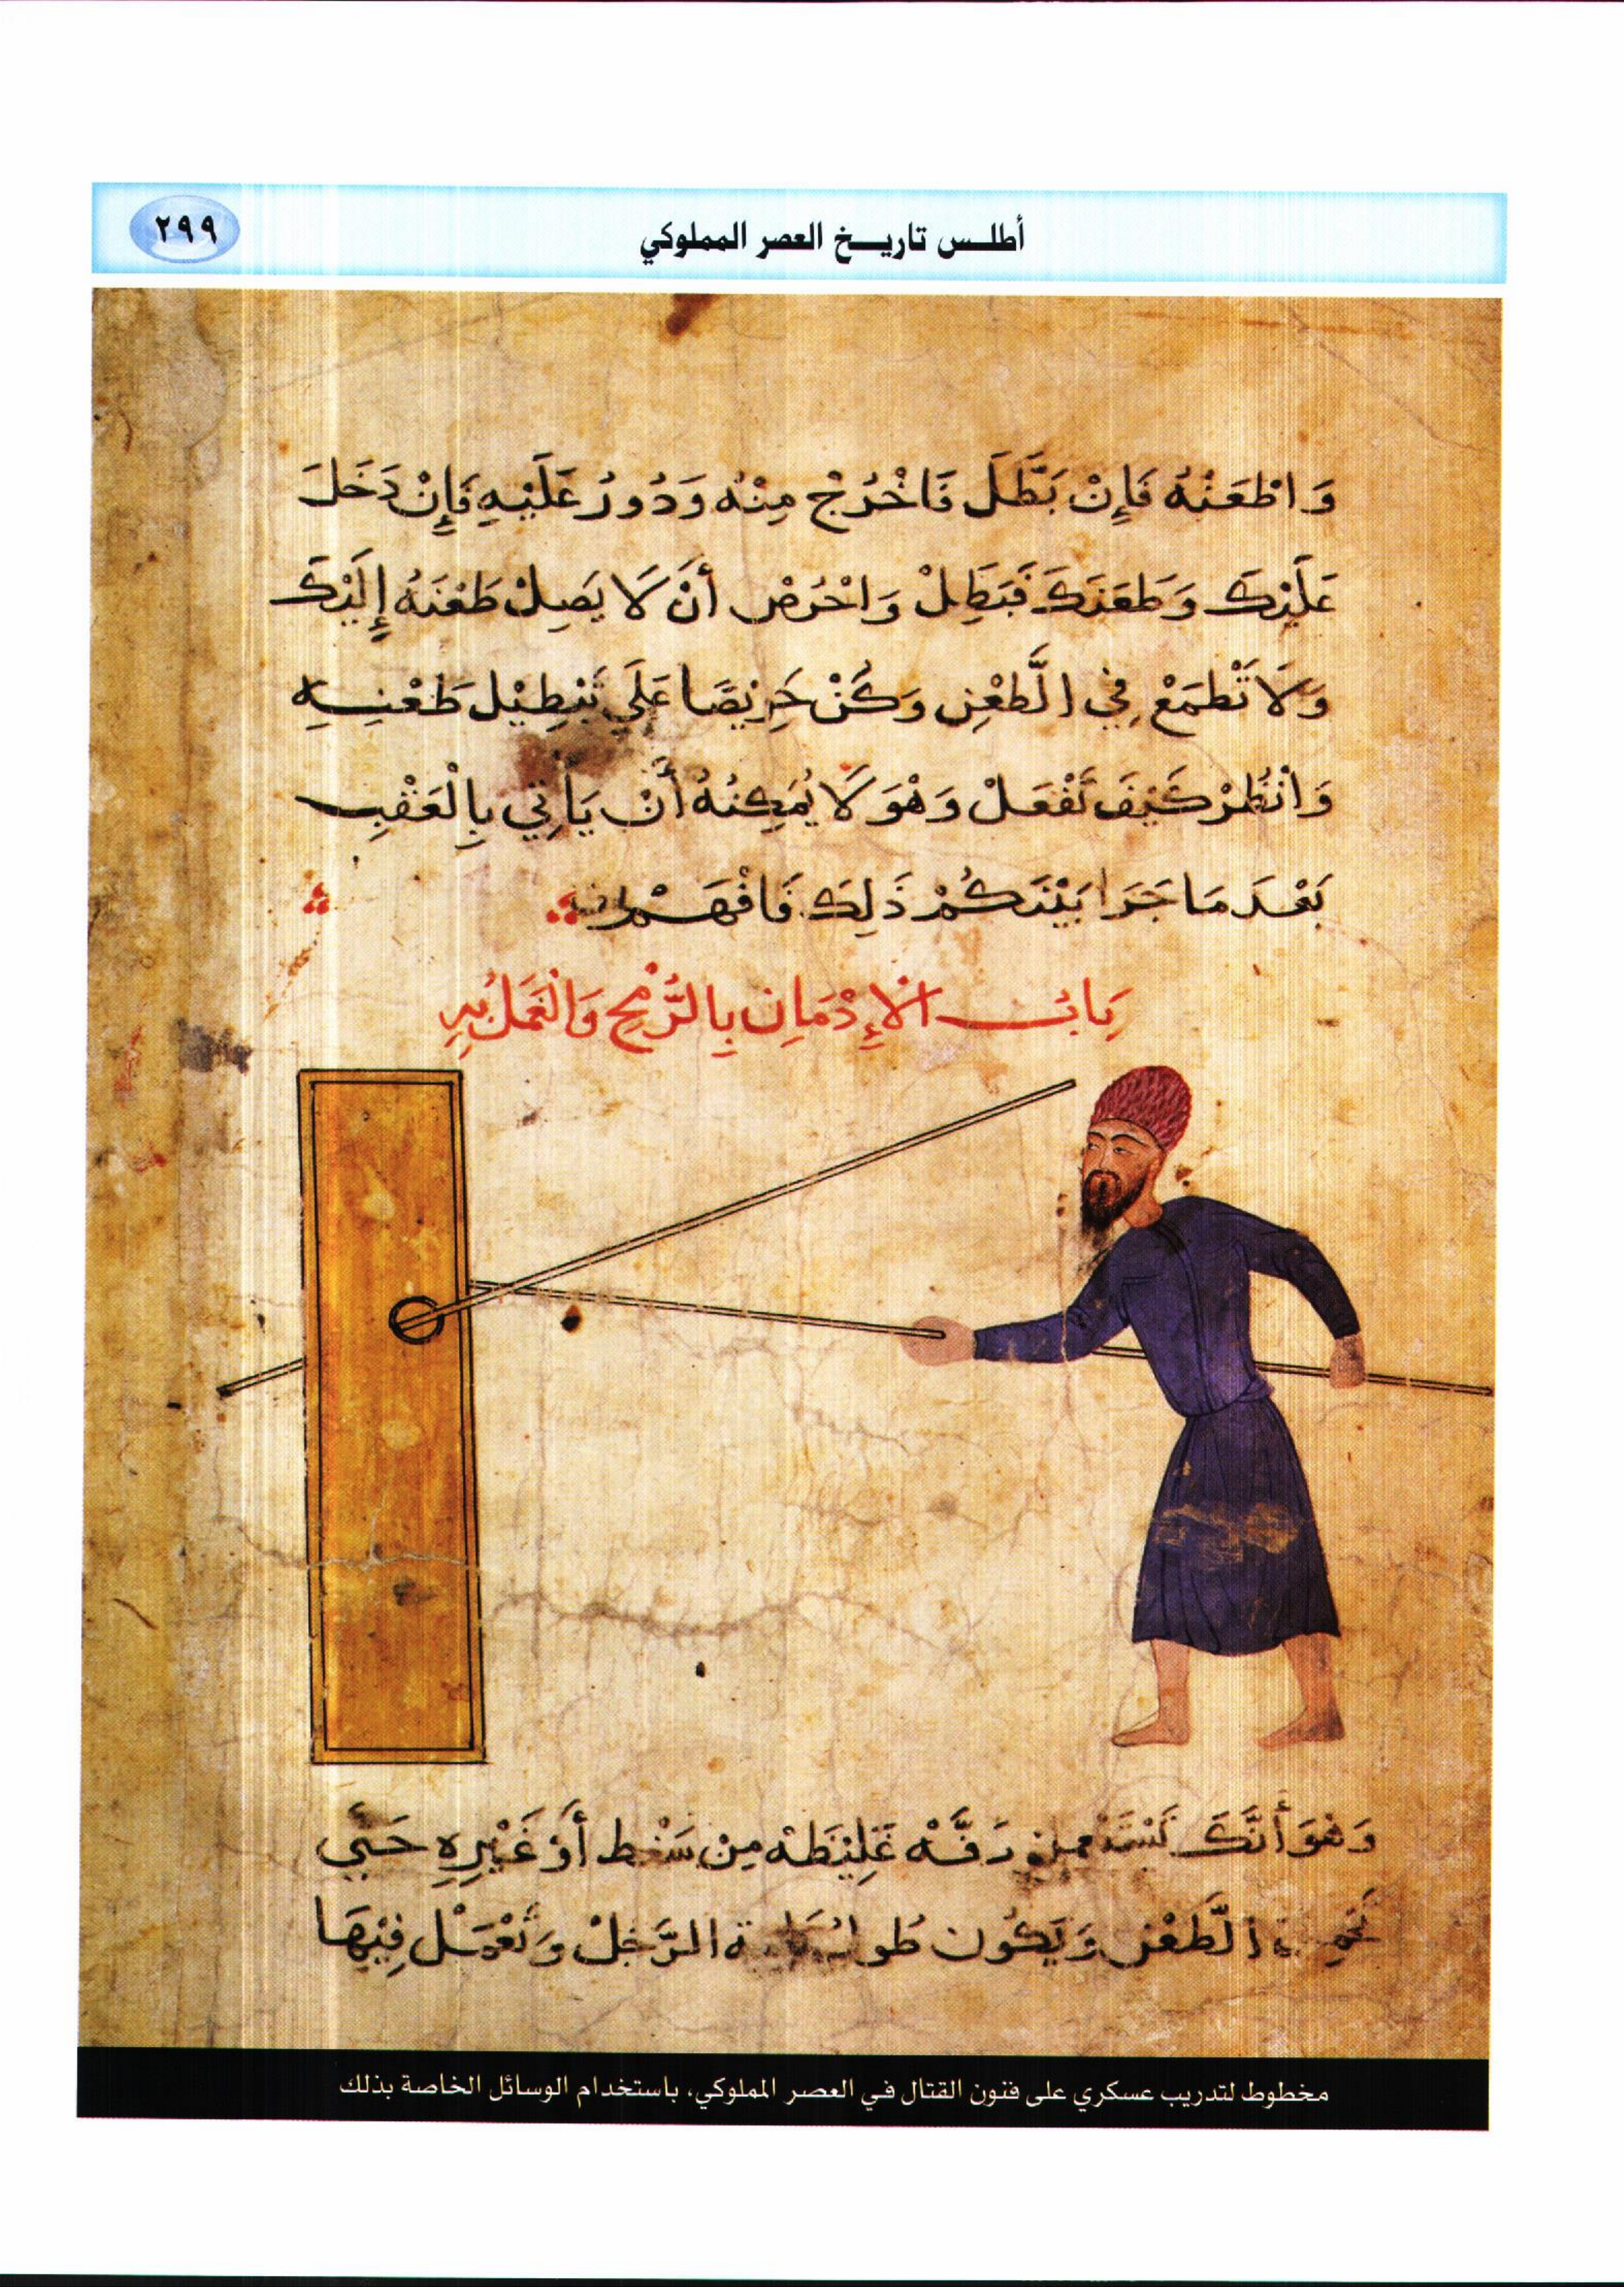 أطلس تاريخ العصر المملوكي
٢٩٩
وَاطْعَنْهُ فَإِنْ بَطَّلَ فَاخْرُجْ مِنْهُ وَدُورُ عَلَيْهِ فَإِنْ دَخَلَ
عَلَيْكَ وَطَعَنَكَ فَبَطِلْ وَاحْرُصْ أَنْ لَا يَصِلْ طَعْنَهُ إِلَيْكَ
وَلَا تَطْمَعْ فِي الَّطعْنِ وَكُنْ حَرِيْصًا عَلَى تَبْطِيْل طَعْنِهِ
وَانْظُرْ كَيْفَ تَفْعَلْ وَهْوَ لَا يُمَكِنُهُ أَنْ يَأتِي بِالْعَقْبِ
بَعْدَ مَا جَرَا بَيْنَكُمْ ذَلِكَ فَافْهَمْ
بَابُ الْإِدْمَانِ بِالرُّمْحِ وَالْعَمَلُ بِهِ
وَهْوَ أَنَّكَ دَفَّهْ غَلِيْظَهْ مِنْ أَوْ غَيْرِهِ حَتَّى
الَّطعْن وَيَكُون الرَّجُلْ وَتَعْمَلْ فِيْهَا
مخطوط لتدريب عسكري على فنون القتال في العصر المملوكي، باستخدام الوسائل الخاصة بذلك